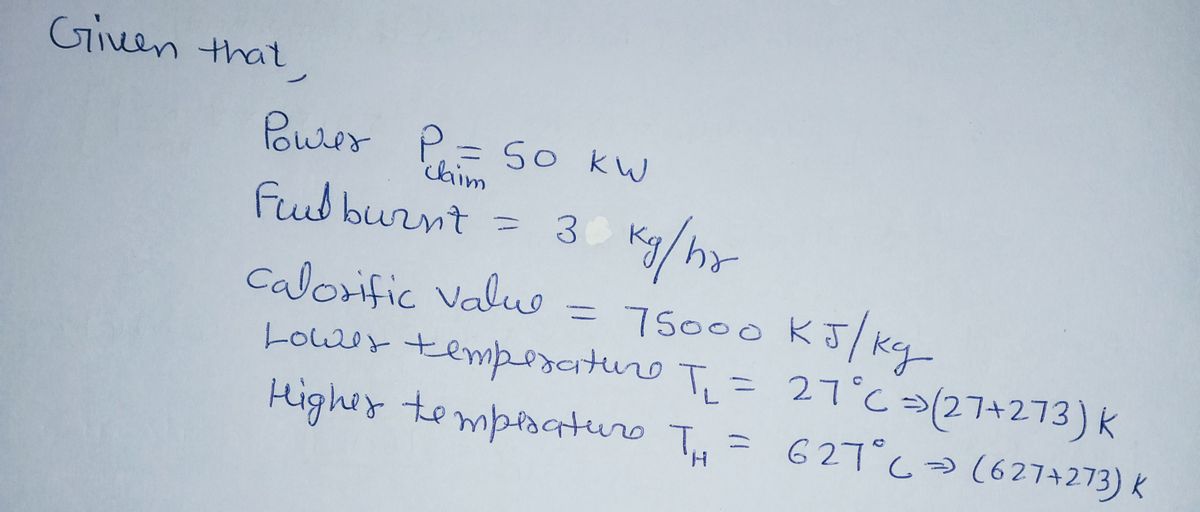 Given that,
Power P claim = 50 kW
Fuel burnt = 3 kg/hr
Calorific value = 75000 KJ/kg
Lower temperature T_L = 27°C ⇒ (27+273) K
Higher temperature T_H = 627°C ⇒ (627+273) K